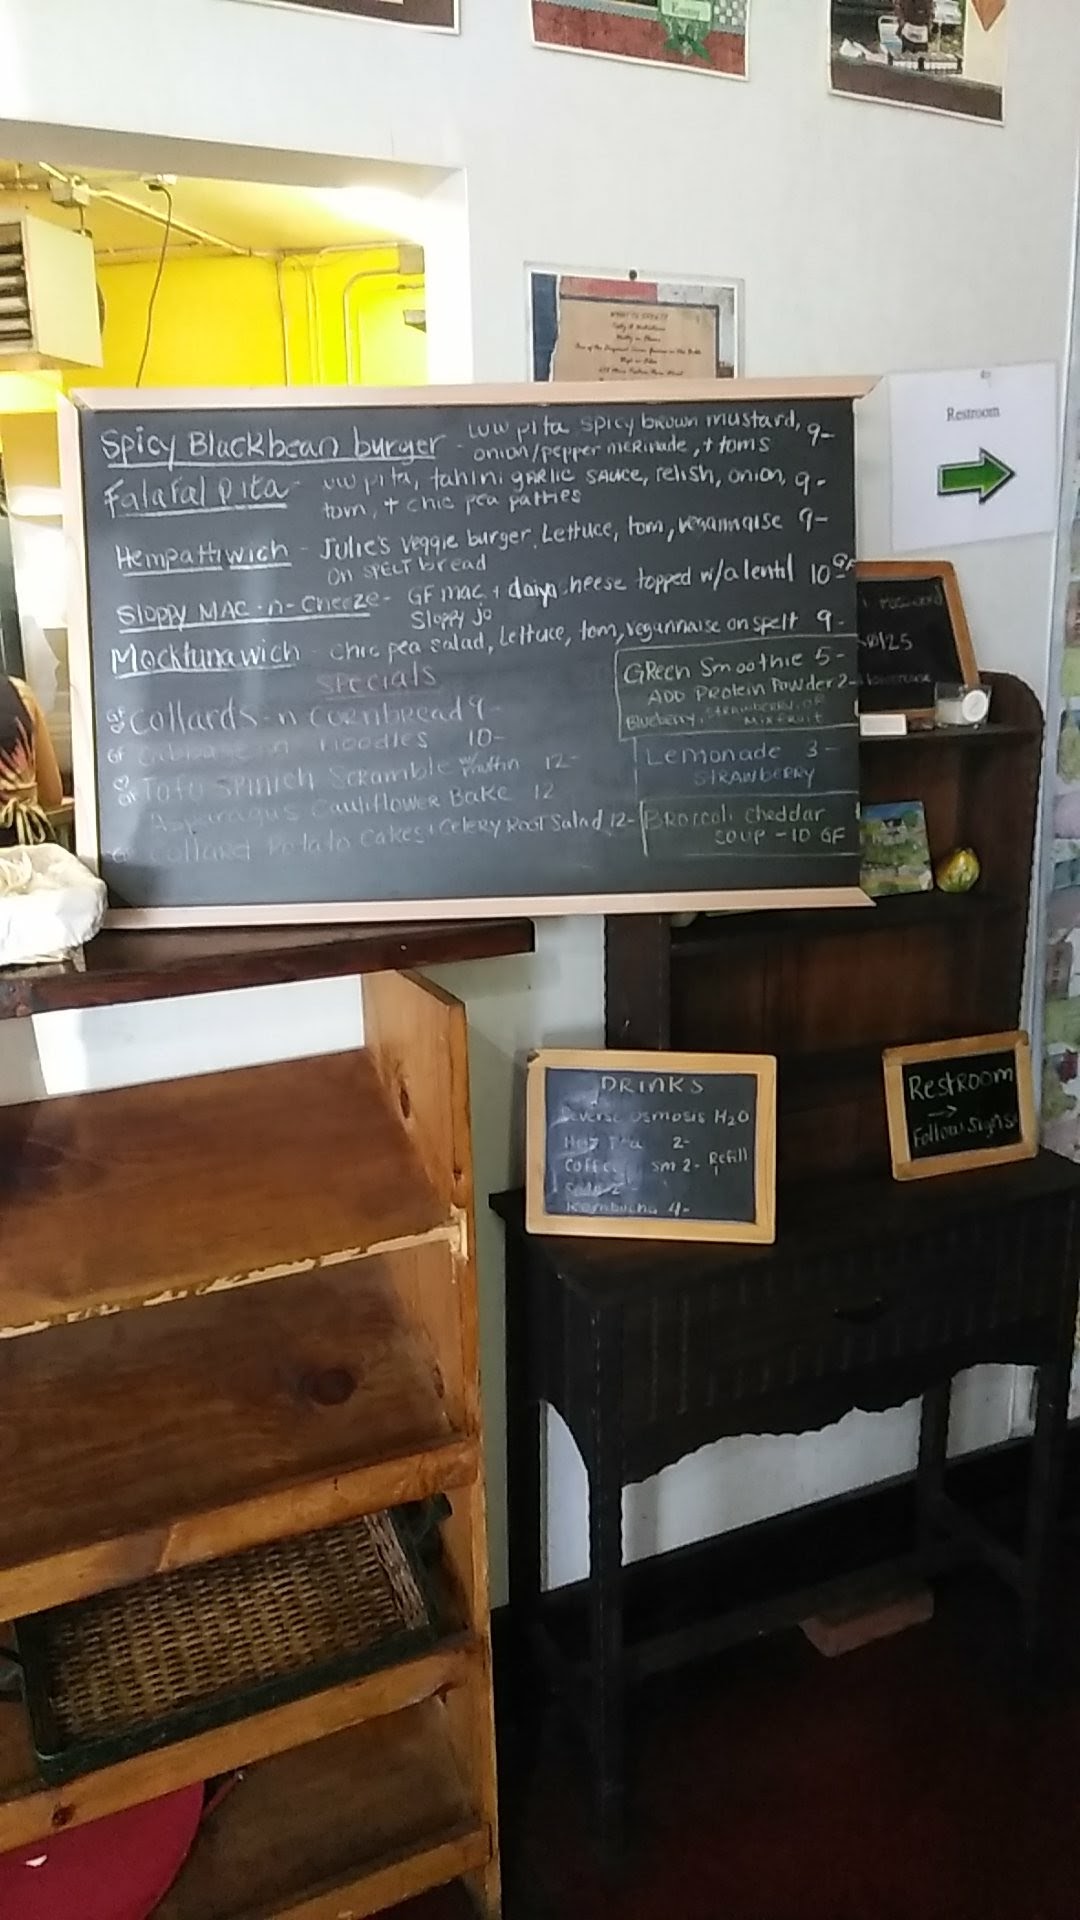 Spicy Blackbean burger - ww pita spicy brown mustard, 9-
onion/pepper merinade, + toms
Falafal pita - ww pita, tahini garlic sauce, relish, onion, 9-
tom, + chic pea patties
Hempattiwich - Julie's veggie burger, Lettuce, tom, vegannaise 9-
on SPELT bread
Sloppy MAC-n-Cheeze - GF mac + daiya cheese topped w/a lentil 10 GF
Sloppy jo
Mocktunawich - chic pea salad, lettuce, tom, vegannaise on spelt 9-
Specials
GF Collards-n Cornbread 9-
GF Cabbage n Noodles 10-
GF Tofo Spinich Scramble w/ muffin 12-
Asparagus Cauliflower Bake 12
Collard Potato Cakes + Celery Root Salad 12-
Green Smoothie 5-
ADD Protein Powder 2-
Blueberry, Strawberry, or
mixfruit
Lemonade 3-
STRAWBERRY
Broccoli cheddar
soup -10 GF
Restroom
DRINKS
Reverse Osmosis H2O
Hot Tea 2-
Coffee sm 2- 1 Refill
Soda 2
Kombucha 4-
Restroom
→
Follow Signs